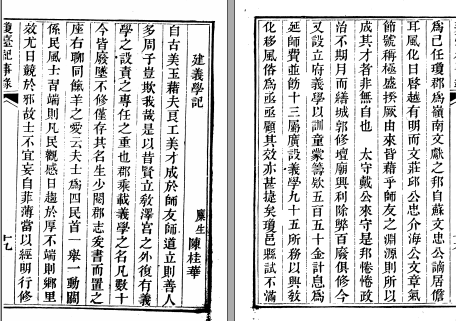 建義學記
廩生 陳桂華
自古美玉藉夫良工美才成於師友師道立則善人
多周子豈欺我哉是以昔賢立敎澤宮之外復有義
學之設責之專任之重也郡乘載義學之名凡數十
今皆廢墜不修僅存其名生少閱郡志爰書而置之
座右聊同餼羊之愛云夫士爲四民首一舉一動關
係民風士習端則凡民觀感日趨於厚不端則鄉里
效尤日競於邪故士不宜妄自菲薄當以經明行修
瓊臺紀事錄 十九
爲己任瓊郡爲嶺南文獻之邦自蘇文忠公謫居儋
耳風化日啓越有明而文莊邱公忠介海公文章氣
節號稱極盛揆厥由來皆藉乎師友之淵源則所以
成其才者非無自也 太守戴公來守是邦惓惓政
治不期月而繕城郭修壇廟興利除弊百廢俱修今
又設立府義學以訓童蒙籌欵五百五十金計息爲
延師費並飭十三屬廣設義學九十五所務以興敎
化移風俗爲亟亟顧其效亦甚捷矣瓊邑縣試不滿